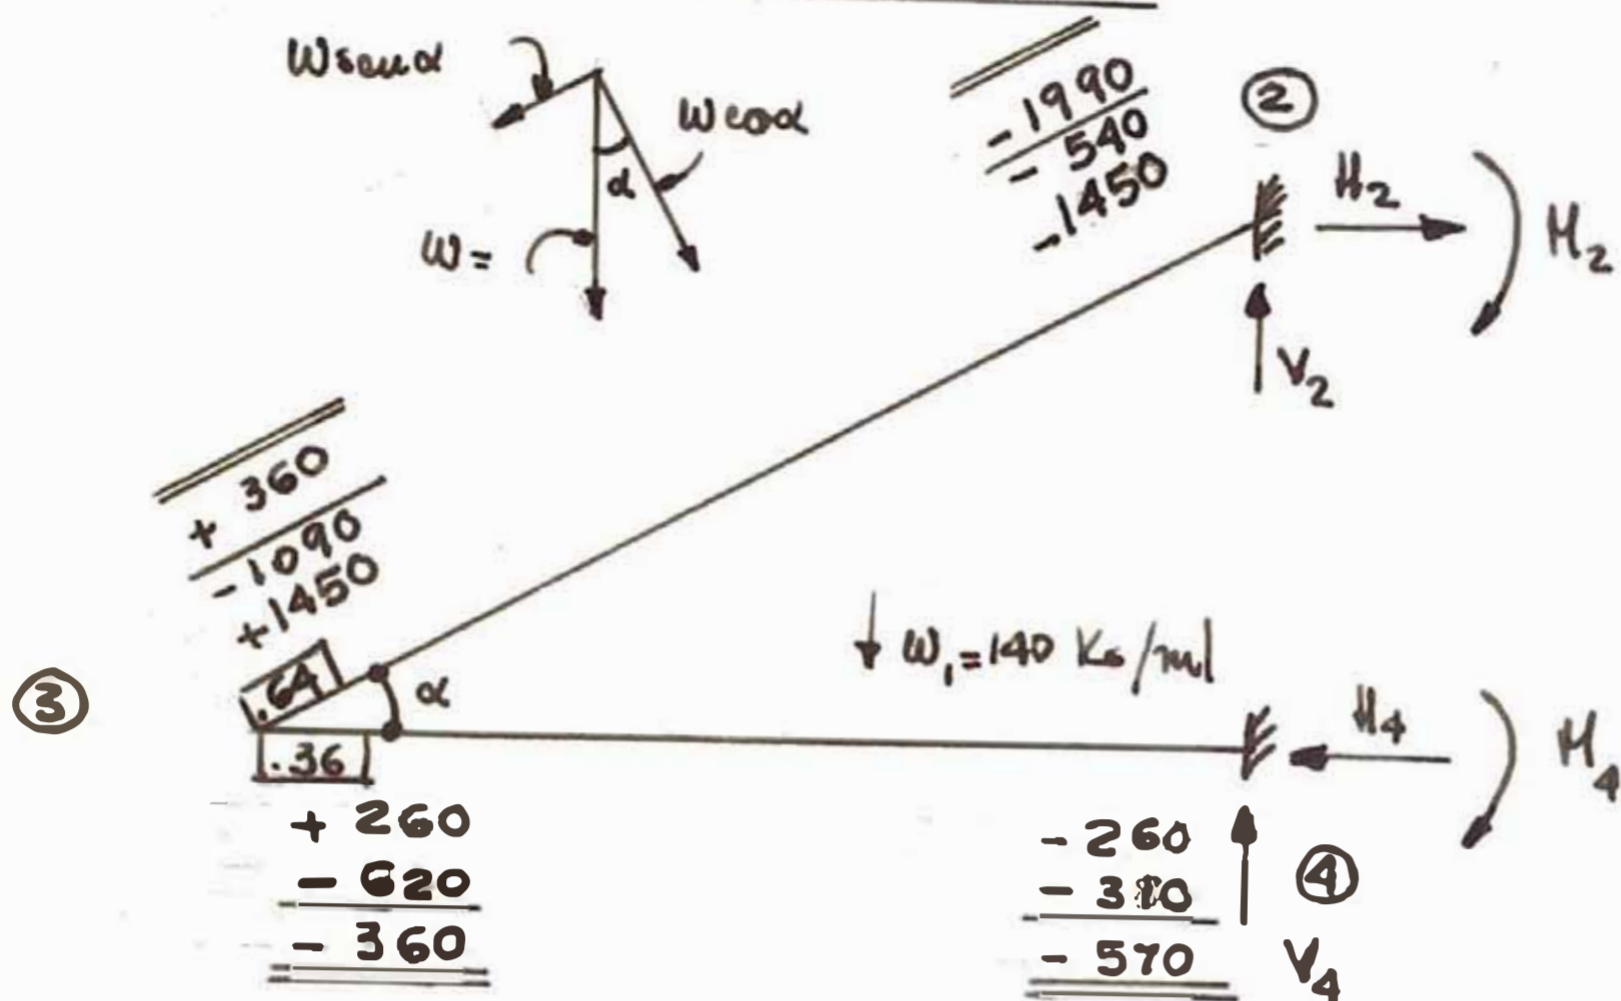 W sen α
W cos α
α
W =
- 1990
- 540
- 1450
②
H₂
M₂
V₂
+ 360
- 1090
+ 1450
.64
③
α
.36
W₁ = 140 Kg/ml
H₄
M₄
+ 260
- 620
- 360
- 260
- 310
- 570
④
V₄